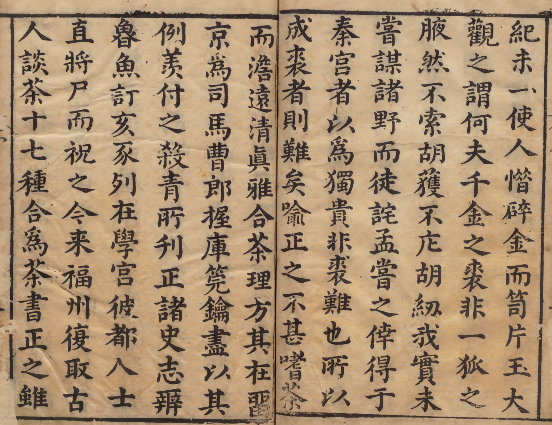 紀未一使人惜碎金而笥片玉大
觀之謂何夫千金之裘非一狐之
腋然不索胡獲不庀胡紉我實未
嘗謀諸野而徒詫孟嘗之倖得于
秦宮者以爲獨貴非裘難也所以
成裘者則難矣喻正之不甚嗜茶
而澹遠清眞雅合茶理方其在留
京爲司馬曹郎握庫筦鑰盡以其
例羨付之殺青所刊正諸史志辯
魯魚訂亥豕列在學宮彼都人士
直將尸而祝之今来福州復取古
人談茶十七種合爲茶書正之雖